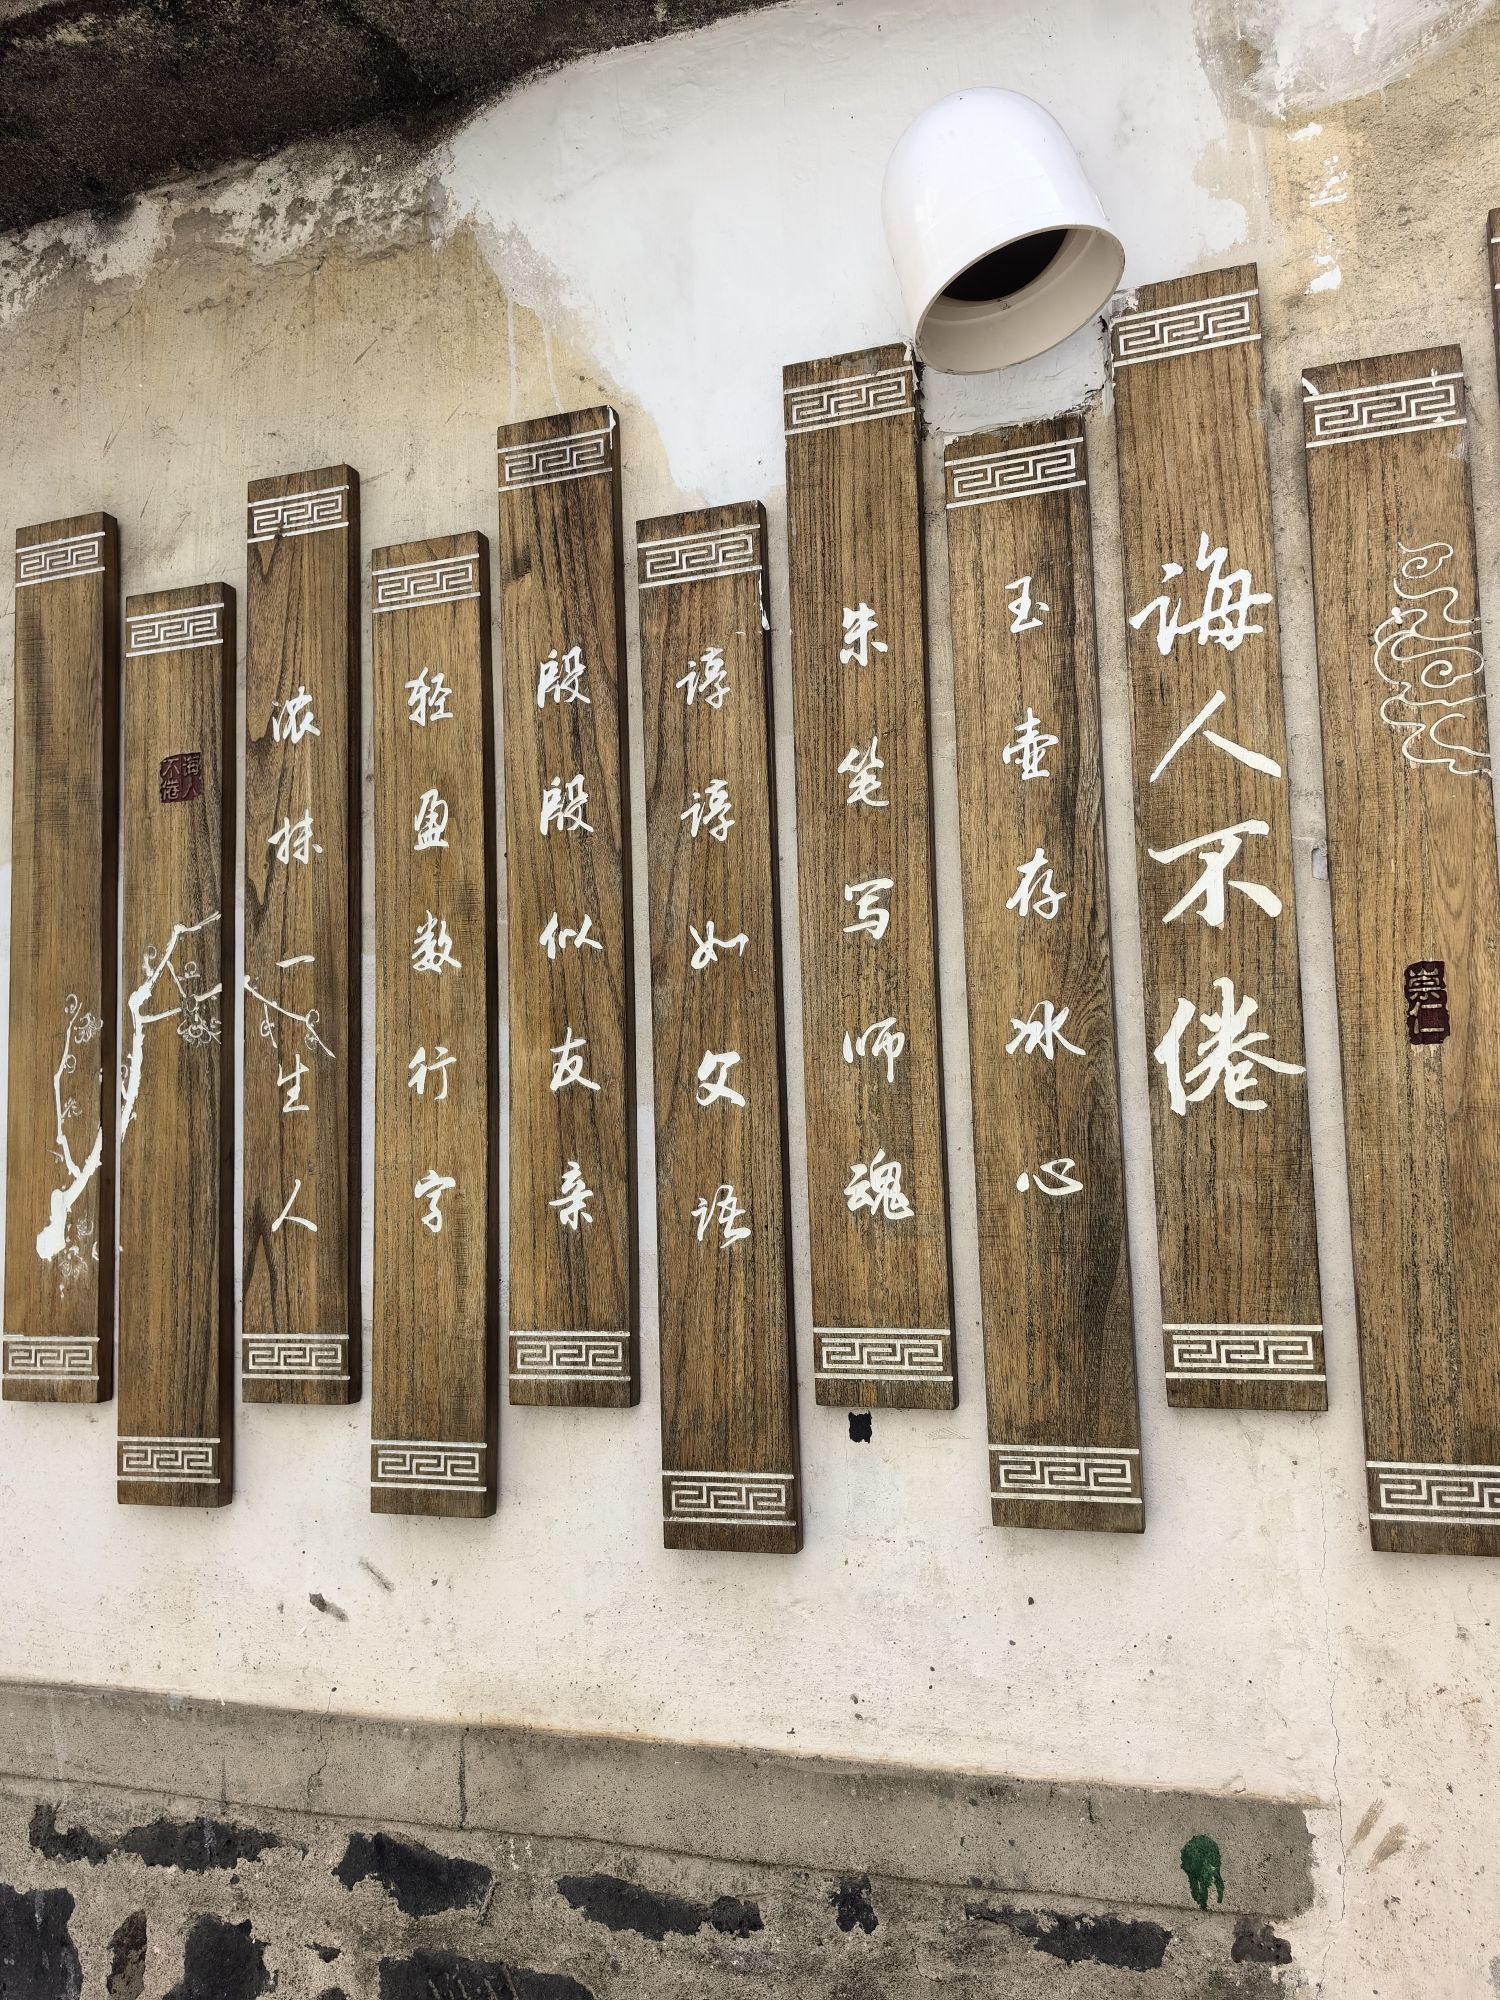 崇仁
诲人不倦
玉壶存冰心
朱笔写师魂
谆谆如父语
殷殷似友亲
轻盈数行字
浓抹一生人
诲人
不倦